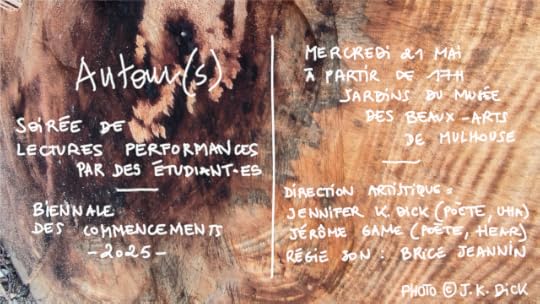 Autour(s)
SOIRÉE DE
LECTURES PERFORMANCES
PAR DES ÉTUDIANT-ES
BIENNALE
DES COMMENCEMENTS
-2025-
MERCREDI 21 MAI
À PARTIR DE 17H
JARDINS DU MUSÉE
DES BEAUX-ARTS
DE MULHOUSE
DIRECTION ARTISTIQUE :
JENNIFER K. DICK (POÈTE, UHA)
JÉRÔME GAME (POÈTE, HEAR)
RÉGIE SON : BRICE JEANNIN
PHOTO © J.K. DICK